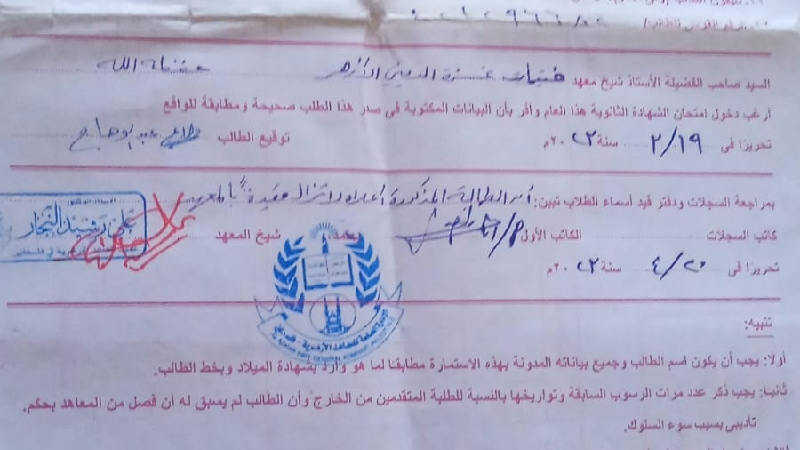 السيد صاحب الفضيلة الأستاذ شيخ معهد فتيات غزة الديني الأزهر حفظه الله
أرغب دخول امتحان الشهادة الثانوية هذا العام وأقر بأن البيانات المكتوبة فى صدر هذا الطلب صحيحة ومطابقة للواقع
تحريرًا فى ٢/١٩ سنة ٢٠٢٣م توقيع الطالب
بمراجعة السجلات ودفتر قيد أسماء الطلاب تبين: أن الطالبة المذكورة أعلاه لا تزال مقيدة بالمعهد
كاتب السجلات الكاتب الأول شيخ المعهد
علي رشيد النجار
تحريرًا فى ٤/٢٠ سنة ٢٠٢٣م
تنبيه:
أولا: يجب أن يكون اسم الطالب وجميع بياناته المدونة بهذه الاستمارة مطابقا لما هو وارد بشهادة الميلاد وبخط الطالب.
ثانيا: يجب ذكر عدد مرات الرسوب السابقة وتواريخها بالنسبة للطلبة المتقدمين من الخارج وأن الطالب لم يسبق له أن فصل من المعاهد بحكم.
تأديبى بسبب سوء السلوك.